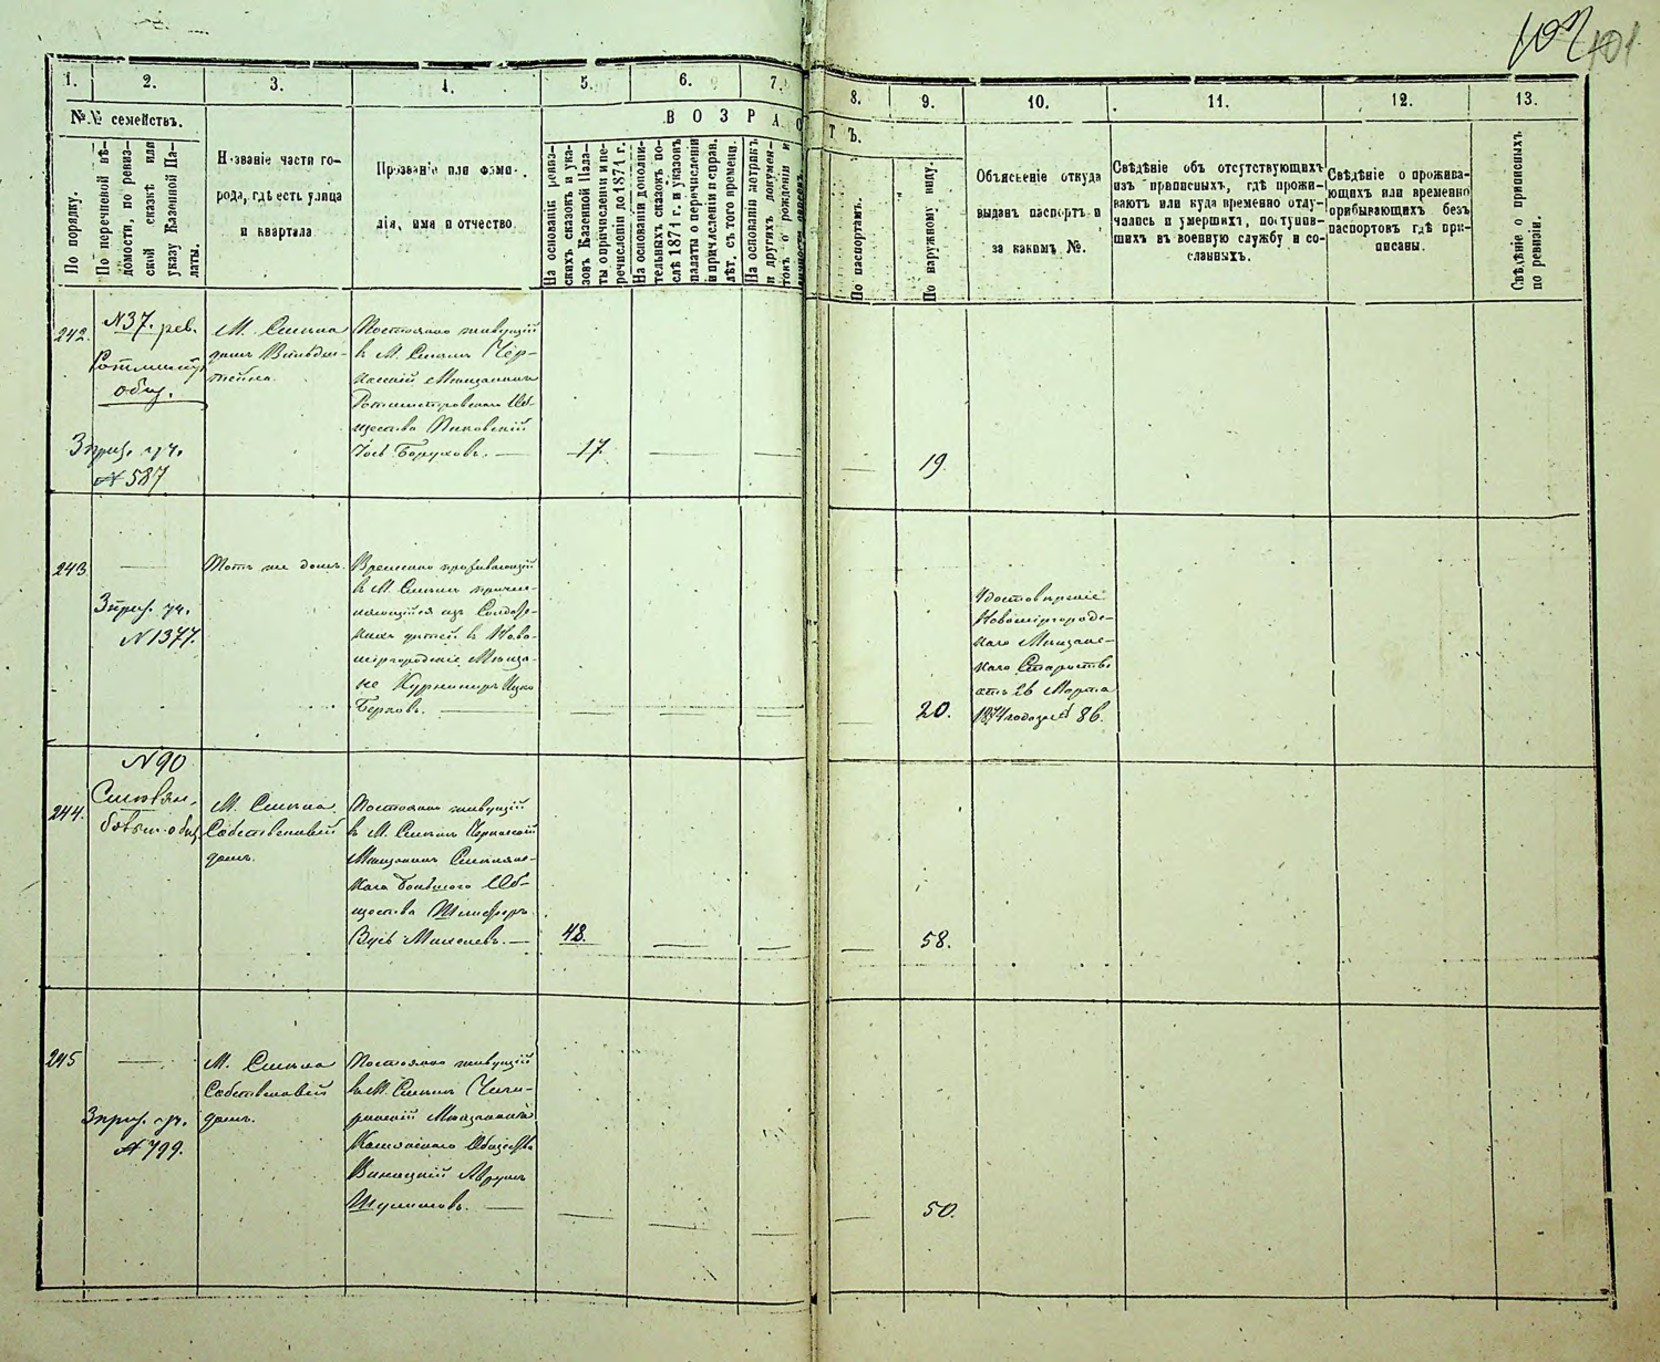 102 101
1. 2. 3. 4. 5. 6. 7. 8. 9. 10. 11. 12. 13.
№№ семействъ.
ВОЗРАСТЪ.
По порядку.
По перечневой вѣ-
домости, по ревиз-
ской сказкѣ или
указу Казенной Па-
латы.
Названіе части го-
рода, гдѣ есть улица
и квартала
Прозваніе или фами-
лія, имя и отчество.
На основаніи ревиз-
скихъ сказокъ и ука-
зовъ Казенной Пала-
ты о причисленіи и пе-
речисленіи до 1871 г.
На основаніи дополни-
тельныхъ сказокъ по-
слѣ 1871 г. и указовъ
палаты о перечисленіи
и причисленіи и справ.
лѣт. съ того времени.
На основаніи метрикъ
и другихъ докумен-
товъ о рожденіи и
По паспортамъ.
По наружному виду.
Объясненіе откуда
выданъ паспортъ и
за какимъ №.
Свѣдѣніе объ отсутствующихъ
изъ приписныхъ, гдѣ прожи-
ваютъ или куда временно отлу-
чались и умершихъ, поступив-
шихъ въ военную службу и со-
сланныхъ.
Свѣдѣніе о прожива-
ющихъ или временно
прибывающихъ безъ
паспортовъ гдѣ при-
писаны.
Свѣдѣніе о приписныхъ
по ревизіи.
242.
№37. рев.
общ.
3 приз. уч.
№ 587
М. Смѣла
домъ
Постоянно живущій
въ М. Смѣлѣ Чер-
каскій Мѣщанинъ
Ротмистровскаго Об-
щества
Боруховъ. —
17.
19.
243
3 приз. уч.
№1377.
Тотъ же домъ.
Временно проживающій
въ М. Смѣлѣ причис-
ляющійся изъ Солдат-
скихъ дѣтей въ Ново-
миргородскіе Мѣща-
не Ицко
Берковъ. —
20.
Удостовѣреніе
Новомиргород-
скаго Мѣщанс-
каго Старосты
отъ 26 Марта
1874 года за № 86.
244.
№90
Смѣлян.
общ.
М. Смѣла
Собственный
домъ.
Постоянно живущій
въ М. Смѣлѣ Черкаскій
Мѣщанинъ Смѣлянс-
каго Общества
48.
58.
245
3 приз. уч.
№ 799.
М. Смѣла
Собственный
домъ.
Постоянно живущій
въ М. Смѣлѣ Чиги-
ринскій Мѣщанинъ
Общества
Аврумъ
Шулимовъ. —
50.